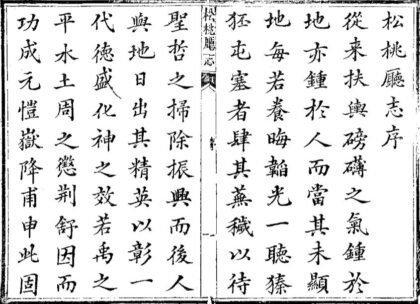 松桃廳志序
從來扶輿磅礴之氣鍾於
地亦鍾於人而當其未顯
地每若養晦韜光一聽獉
狉屯塞者肆其蕪穢以待
松桃廳志
序
一
聖哲之掃除振興而後人
與地日出其精英以彰一
代德盛化神之效若禹之
平水土周之懲荆舒因而
功成元愷嶽降甫申此固